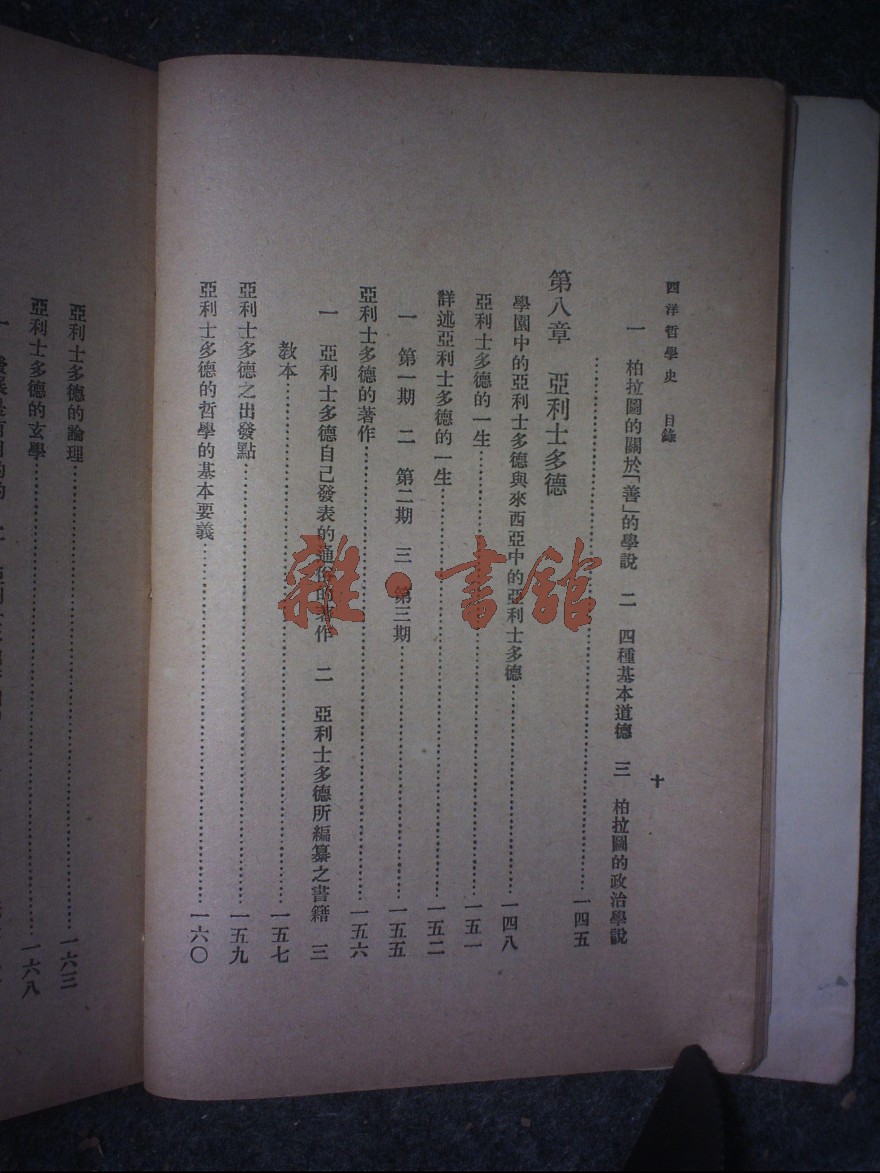 西洋哲學史　目錄
十
一　柏拉圖的關於「善」的學說　二　四種基本道德　三　柏拉圖的政治學說
……一四五
第八章　亞利士多德
學園中的亞利士多德與來西亞中的亞利士多德……一四八
亞利士多德的一生……一五一
詳述亞利士多德的一生……一五二
一　第一期　二　第二期　三　第三期……一五五
亞利士多德的著作……一五六
一　亞利士多德自己發表的通俗的著作　二　亞利士多德所編纂之書籍　三
教本……一五七
亞利士多德之出發點……一五九
亞利士多德的哲學的基本要義……一六〇
亞利士多德的論理……一六三
亞利士多德的玄學……一六八
雜·書館